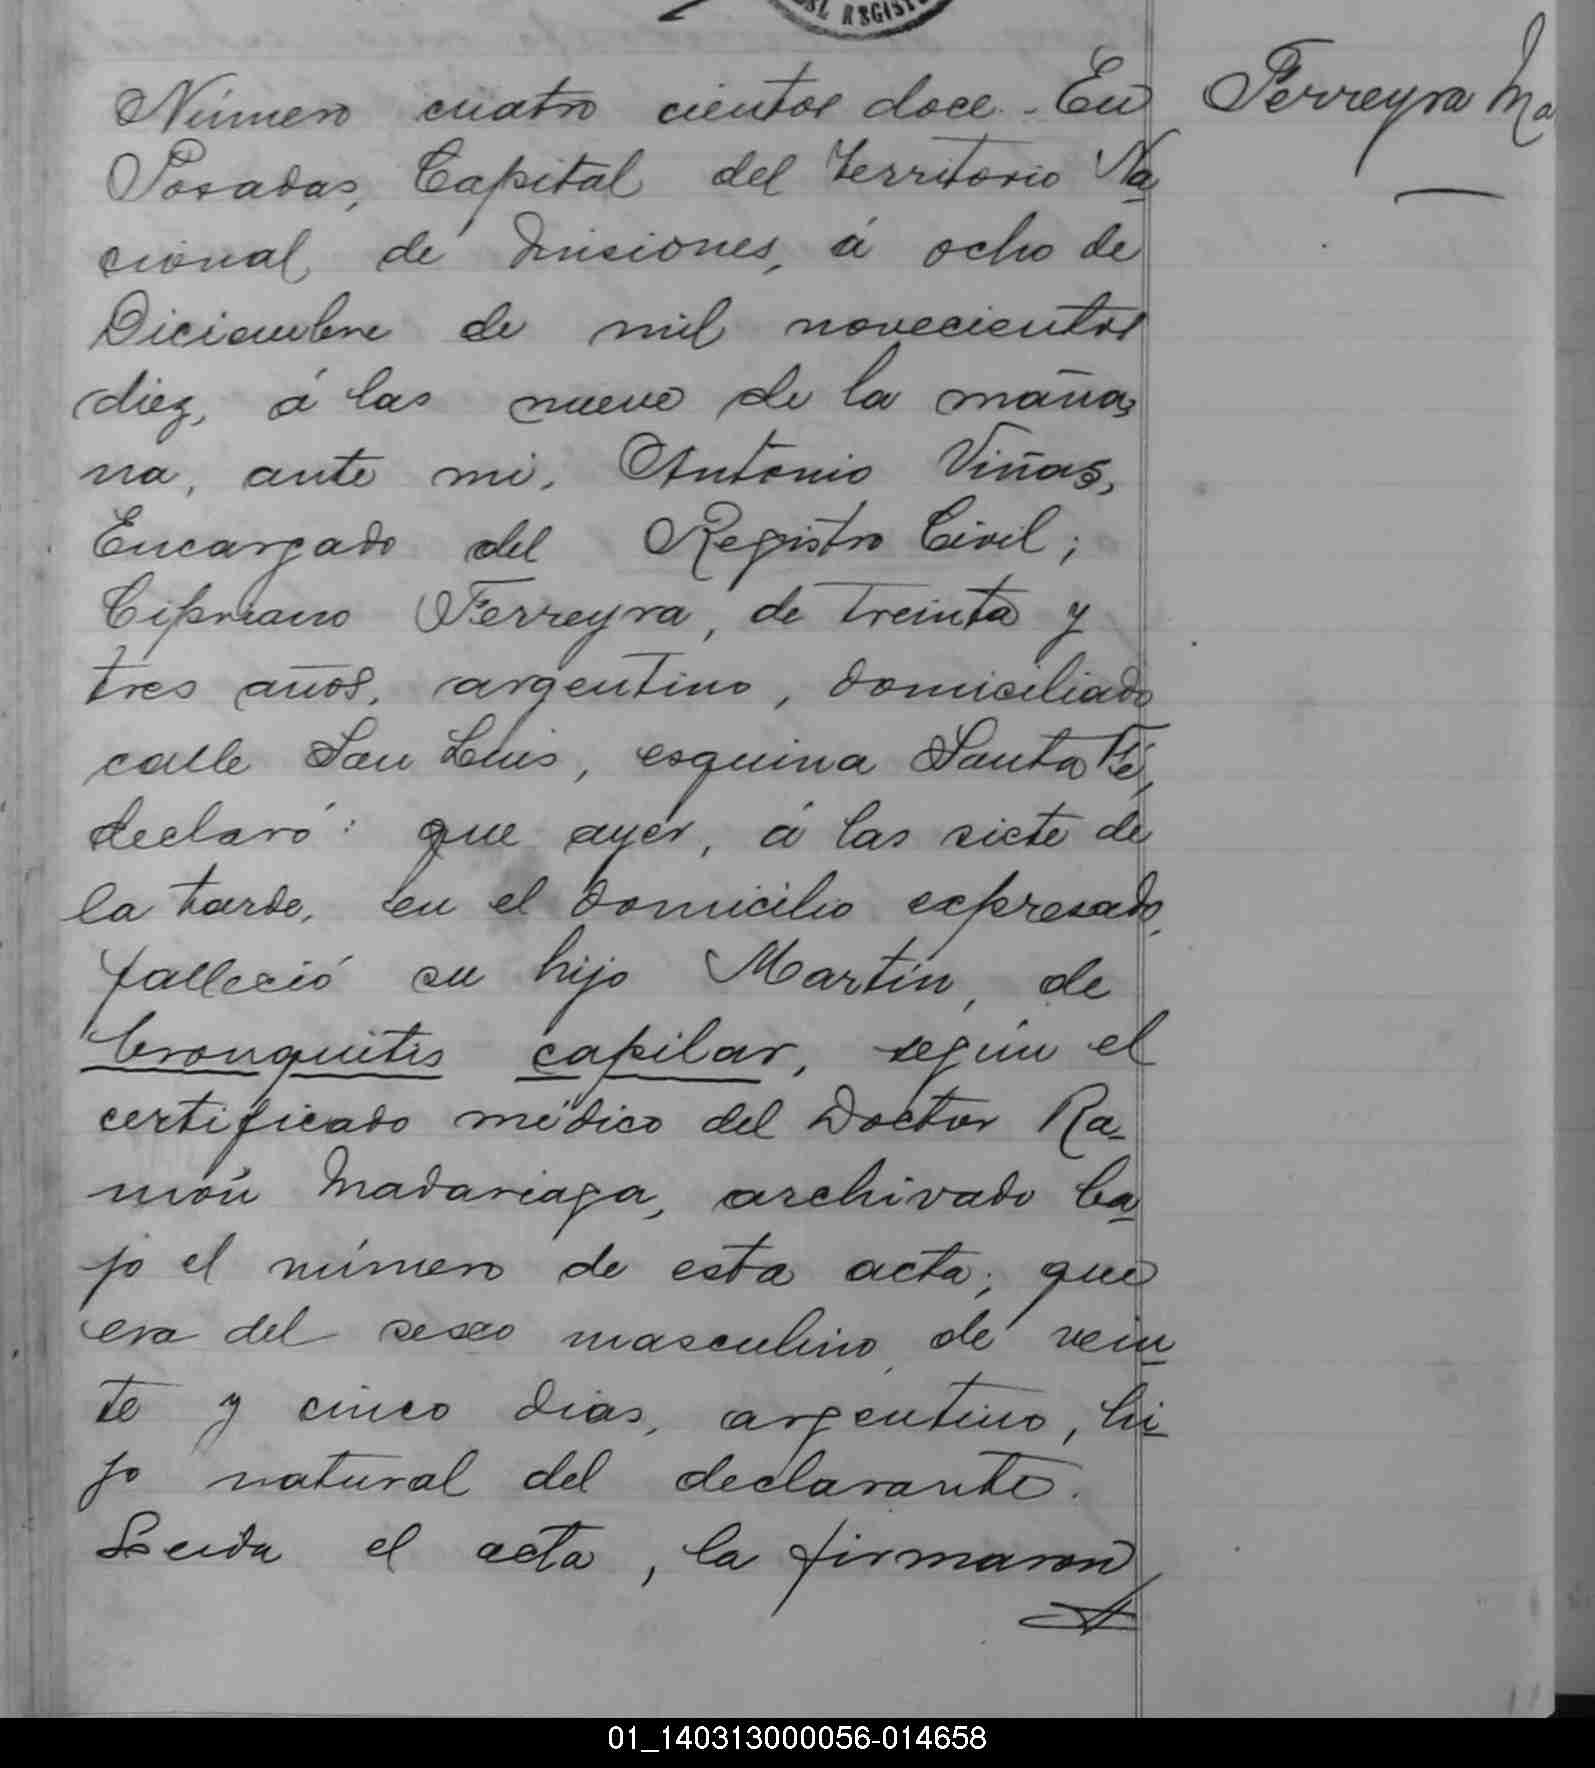 DEL REGIST
Número cuatro cientos doce. En
Posadas, Capital del Territorio Na
cional de Misiones, á ocho de
Diciembre de mil novecientos
diez, á las nueve de la maña
na, ante mi, Antonio Viñas,
Encargado del Registro Civil;
Cipriano Ferreyra, de treinta y
tres años, argentino, domiciliado
calle San Luis, esquina Santa Fé,
declaró: que ayer, á las siete de
la tarde, en el domicilio expresado,
falleció su hijo Martín, de
bronquitis capilar, según el
certificado médico del Doctor Ra-
món Madariaga, archivado ba
jo el número de esta acta; que
era del sexo masculino, de vein
te y cinco dias, argentino, hi
jo natural del declarante.
Leida el acta, la firmaron
Ferreyra Ma
01_140313000056-014658